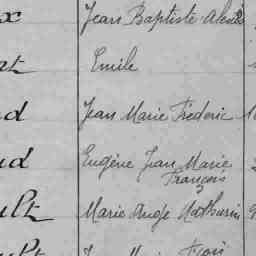 x Jean Baptiste Alexis
Emile
d Jean Marie Frédéric
ud Eugène Jean Marie
François
ult Marie Ange Mathurin